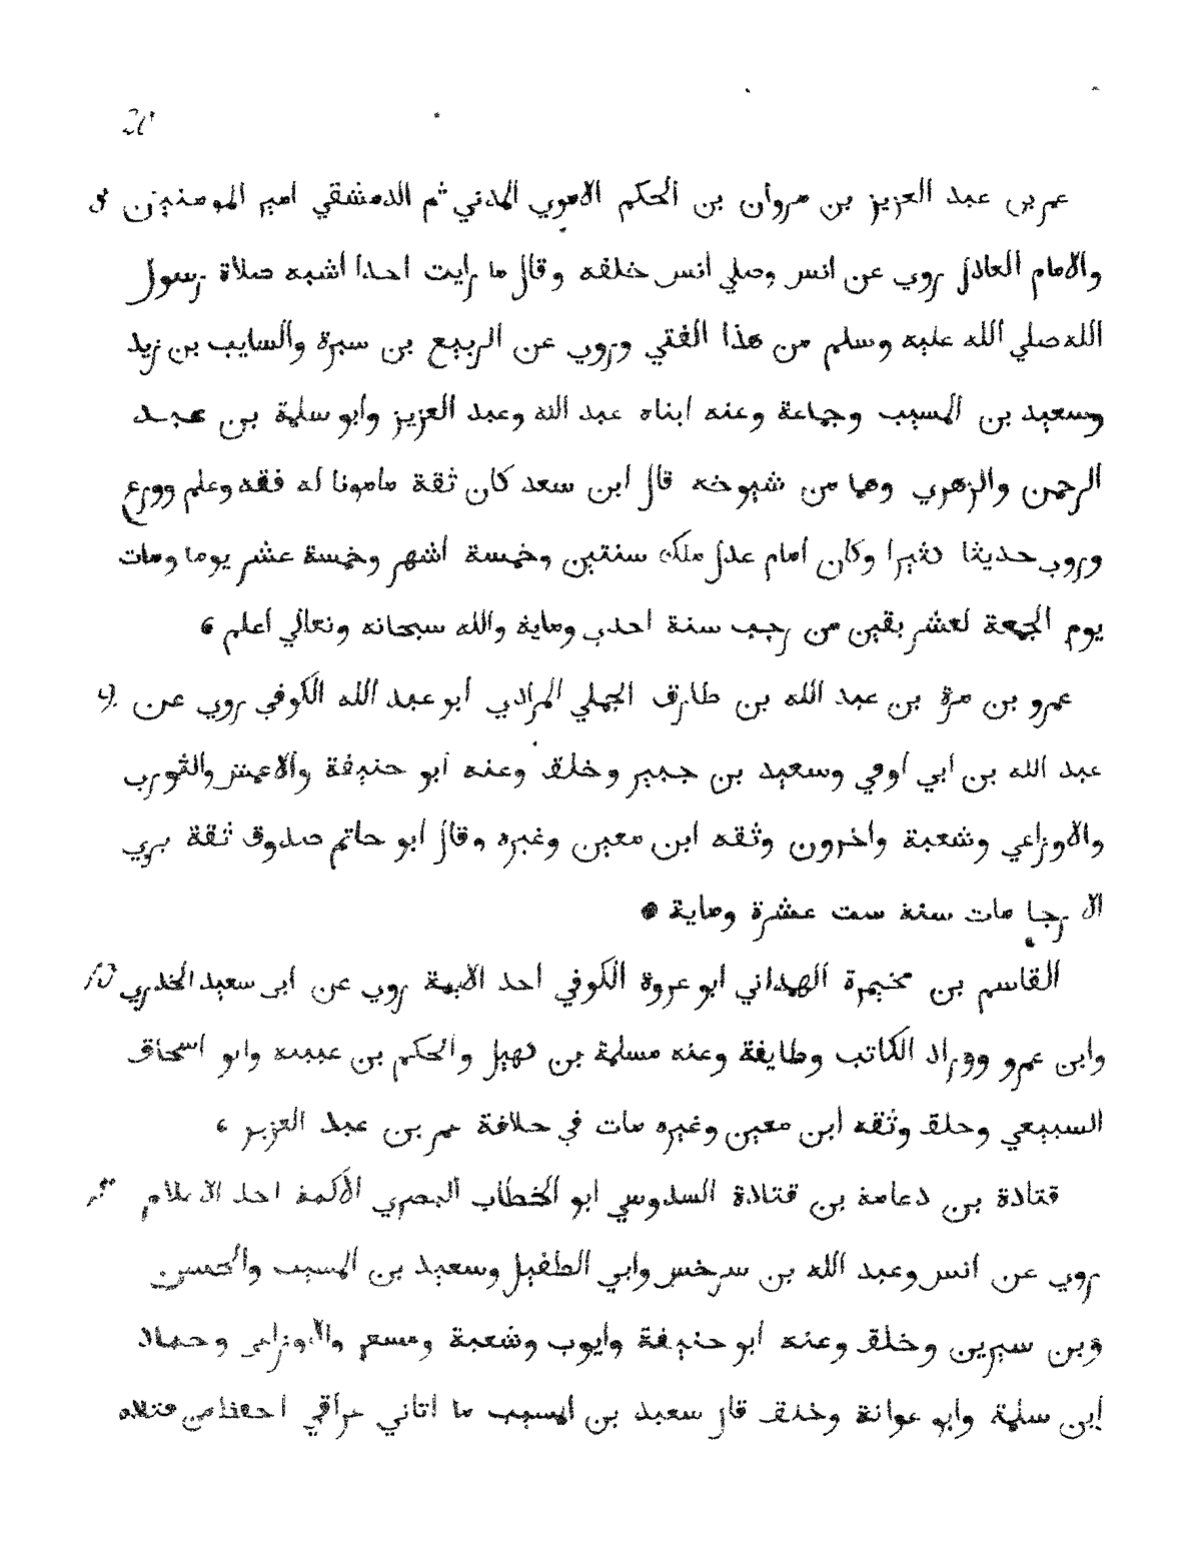 عمر بن عبد العزيز بن مروان بن الحكم الاموي المدني ثم الدمشقي امير المومنين
والامام العادل روي عن انس وصلي انس خلفه وقال ما رايت احدا اشبه صلاة برسول
الله صلي الله عليه وسلم من هذا الفتي وروي عن الربيع بن سبرة والسايب بن يزيد
وسعيد بن المسيب وجماعة وعنه ابناه عبد الله وعبد العزيز وابو سلمة بن عبد
الرحمن والزهري وهما من شيوخه قال ابن سعد كان ثقة مامونا له فقه وعلم وورع
وروي حديثا كثيرا وكان امام عدل ملك سنتين وخمسة اشهر وخمسة عشر يوما ومات
يوم الجمعة لعشر بقين من رجب سنة احدي وماية والله سبحانه وتعالي اعلم
عمرو بن مرة بن عبد الله بن طارق الجملي المرادي ابو عبد الله الكوفي روي عن
عبد الله بن ابي اوفي وسعيد بن جبير وخلق وعنه ابو حنيفة والاعمش والثوري
والاوزاعي وشعبة واخرون وثقه ابن معين وغيره وقال ابو حاتم صدوق ثقة يري
الارجا مات سنة ست عشرة وماية
القاسم بن مخيمرة الهمداني ابو عروة الكوفي احد الايمة روي عن ابي سعيد الخدري
وابن عمرو ووراد الكاتب وطايفة وعنه مسلمة بن كهيل والحكم بن عيينه وابو اسحاق
السبيعي وخلق وثقه ابن معين وغيره مات في خلافة عمر بن عبد العزيز
قتادة بن دعامة بن قتادة السدوسي ابو الخطاب البصري الأكمة احد الاعلام
روي عن انس وعبد الله بن سرخس وابي الطفيل وسعيد بن المسيب والحسن
وبن سيرين وخلق وعنه ابو حنيفة وايوب وشعبة ومسعر والاوزاعي وحماد
ابن سلمة وابو عوانة وخلق قال سعيد بن المسيب ما اتاني عراقي احفظ من قتاده